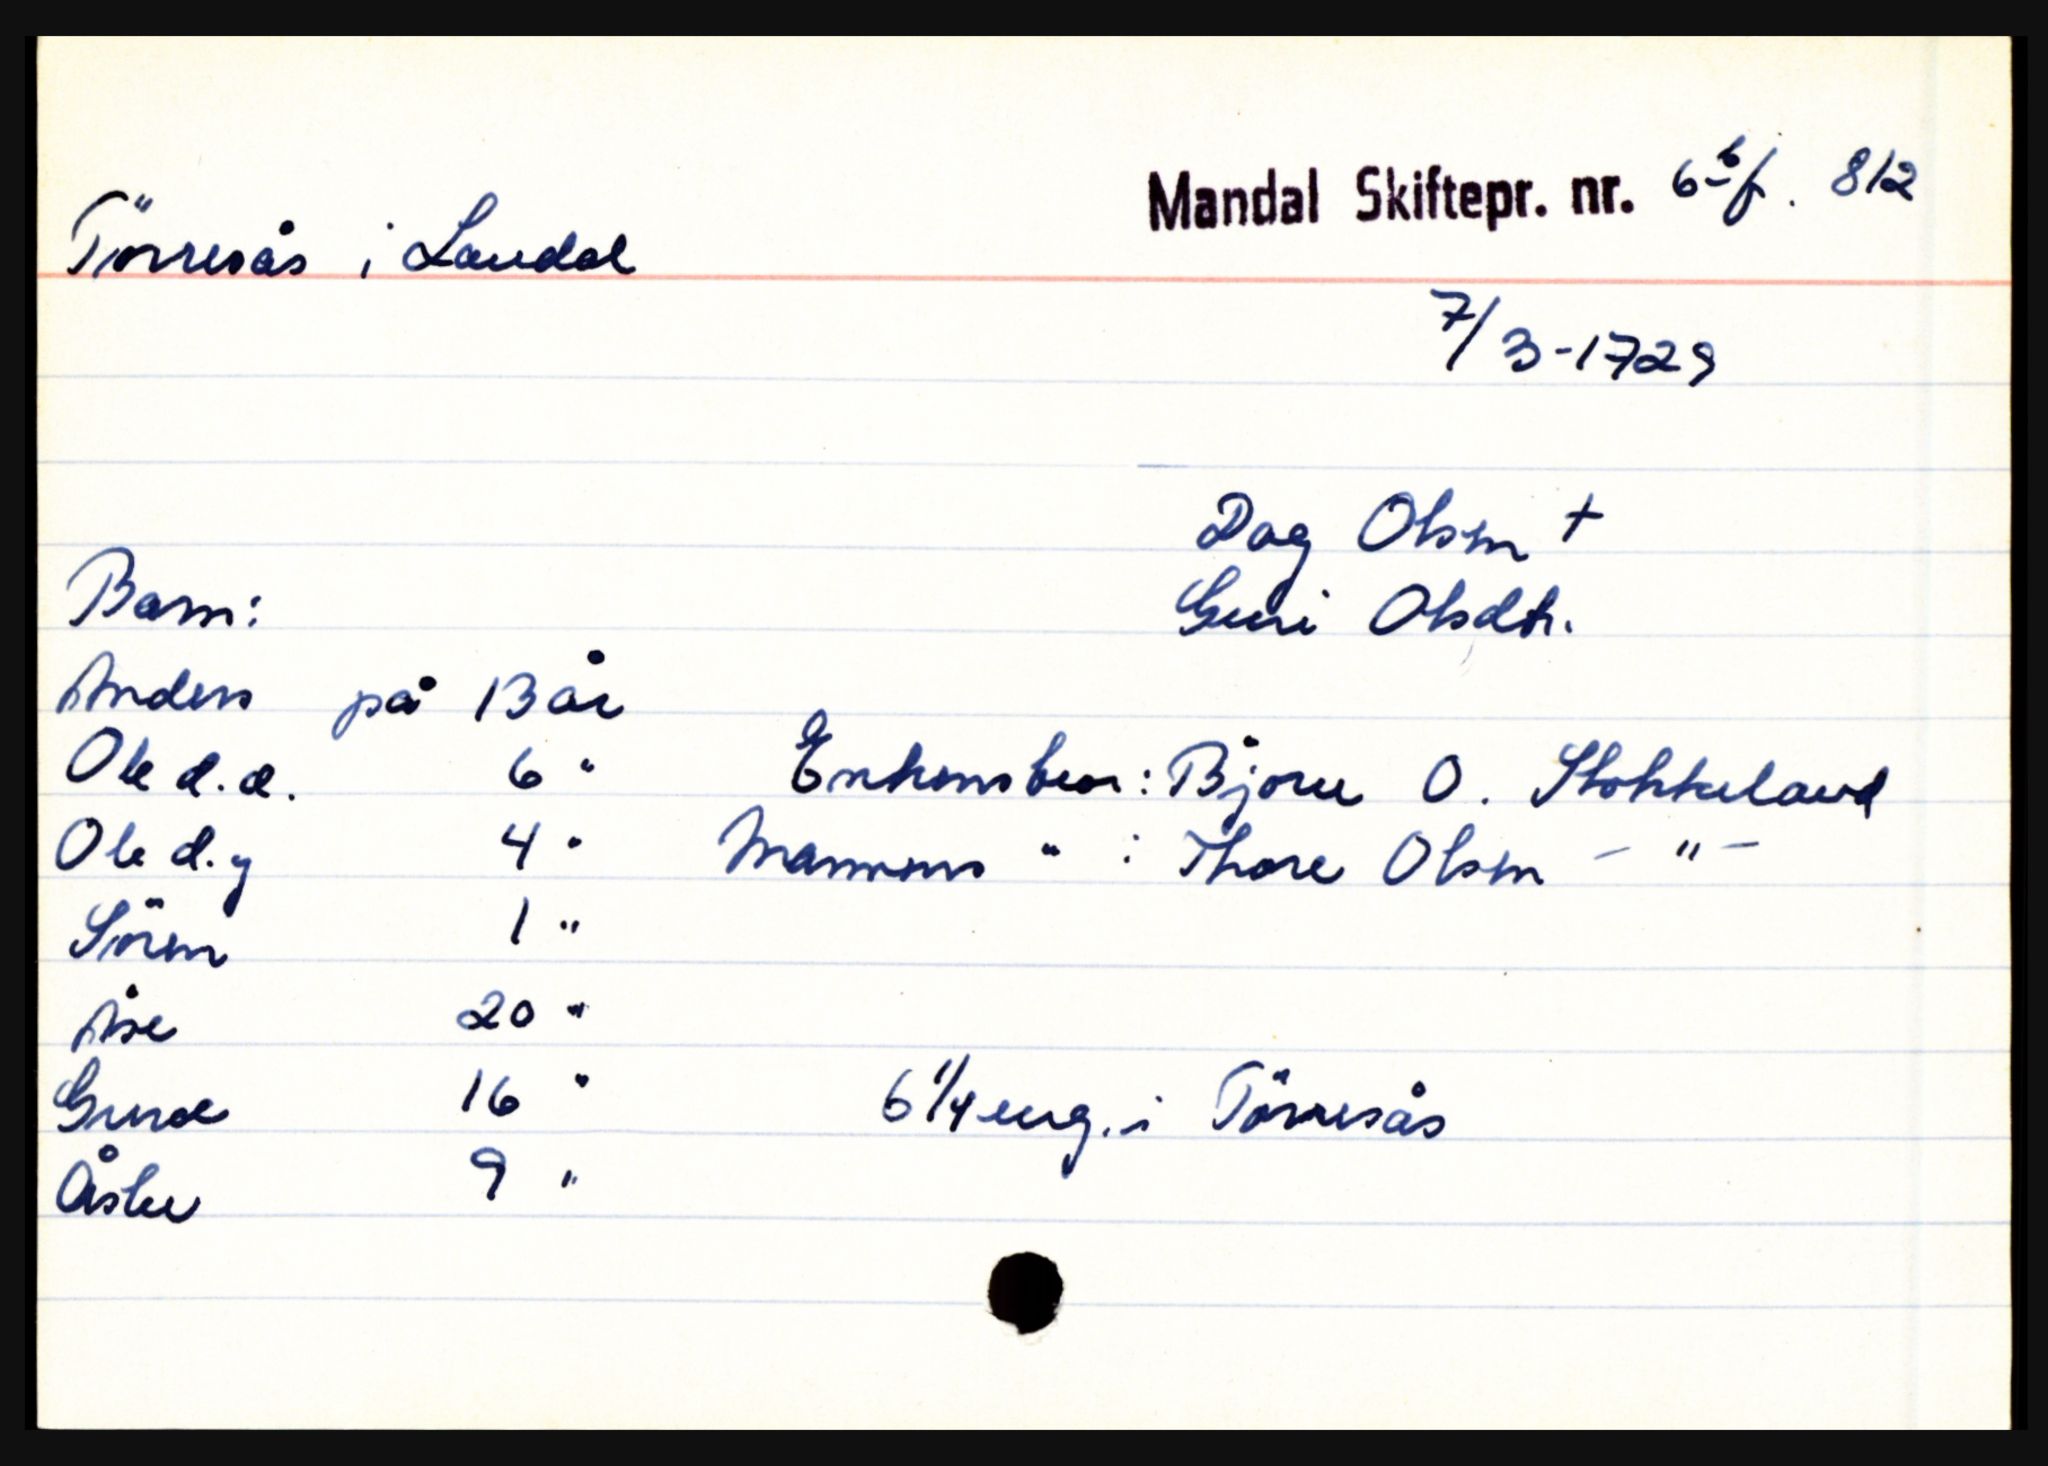 Mandal Skiftepr. nr. 6 b f. 812
Törresås i Laudal
7/3-1729
Dag Olsen +
Guri Olsdtr.
Barn:
Anders på 13 år
Ole d.e. 6 "
Ole d.y 4 "
Sören 1 "
Åse 20 "
Gurod 16 "
Åslew 9 "
Enkens bror: Bjorn O. Stokkeland
Mannens " : Thore Olsen - " -
6 1/4 eng. i Törresås